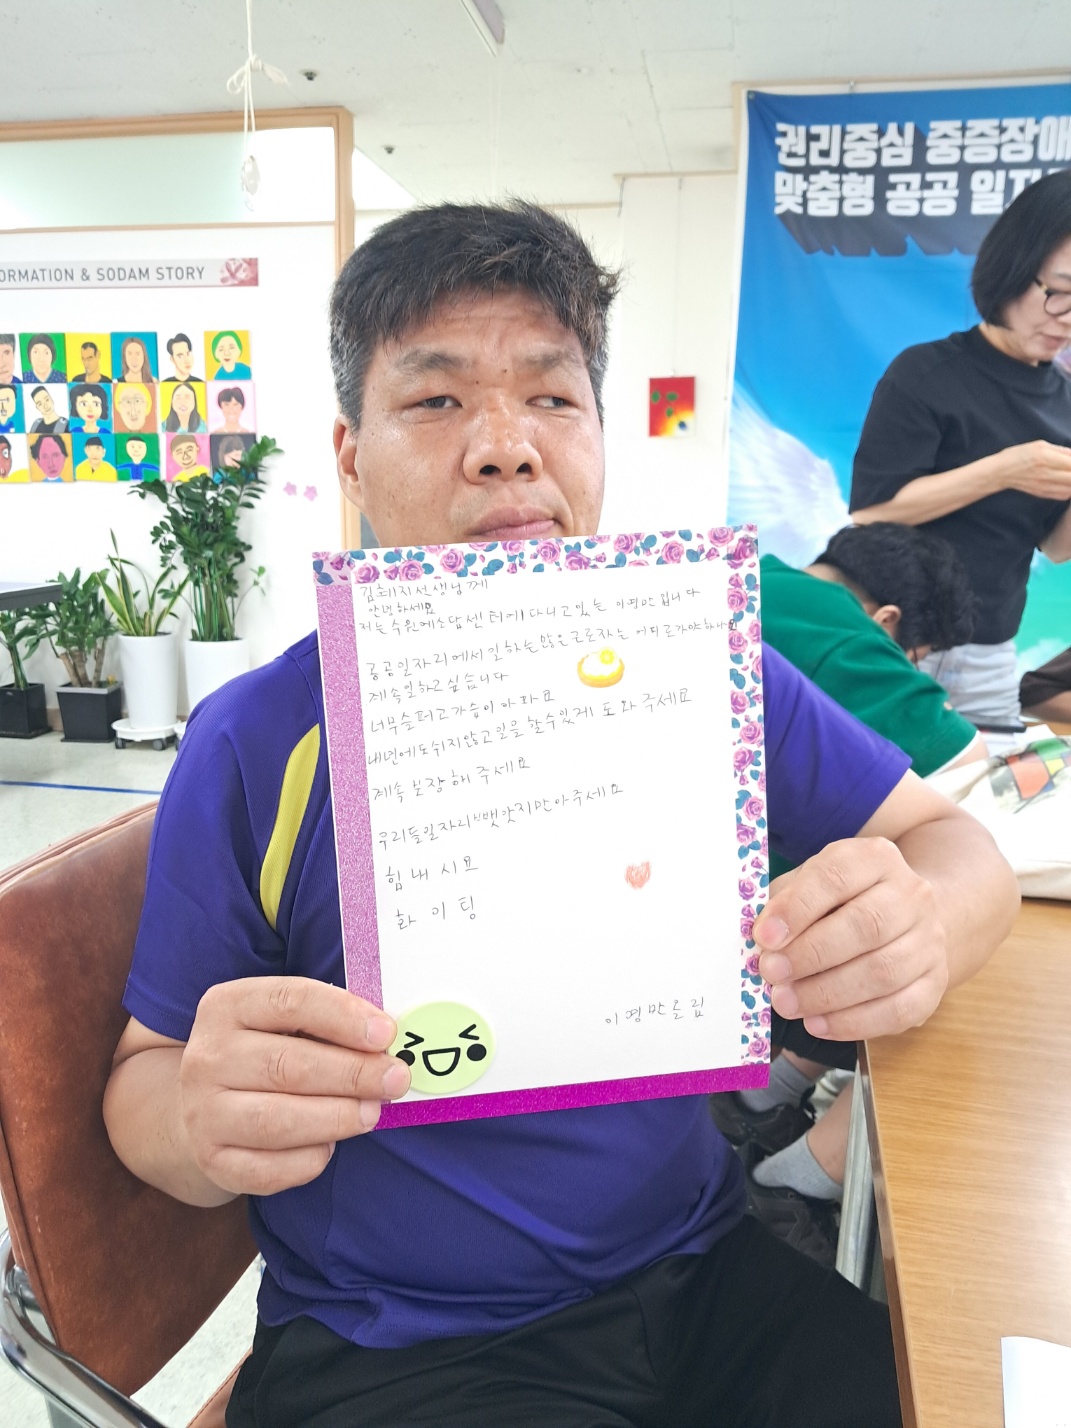 권리중심 중증장애
맞춤형 공공 일자
ORMATION & SODAM STORY
김혜지선생님께
안녕하세요
저는수원에소담센터에다니고있는 이영만입니다
공공일자리에서일하는많은근로자는 어디로가야하나요
계속일하고싶습니다
너무슬퍼고가슴이 아파요
내년에도쉬지않고일을 할수있게 도와 주세요
계속 보장해 주세요
우리들일자리뺏앗지만아주세요
힘 내 시 요
화 이 팅
이 영 만 올 림